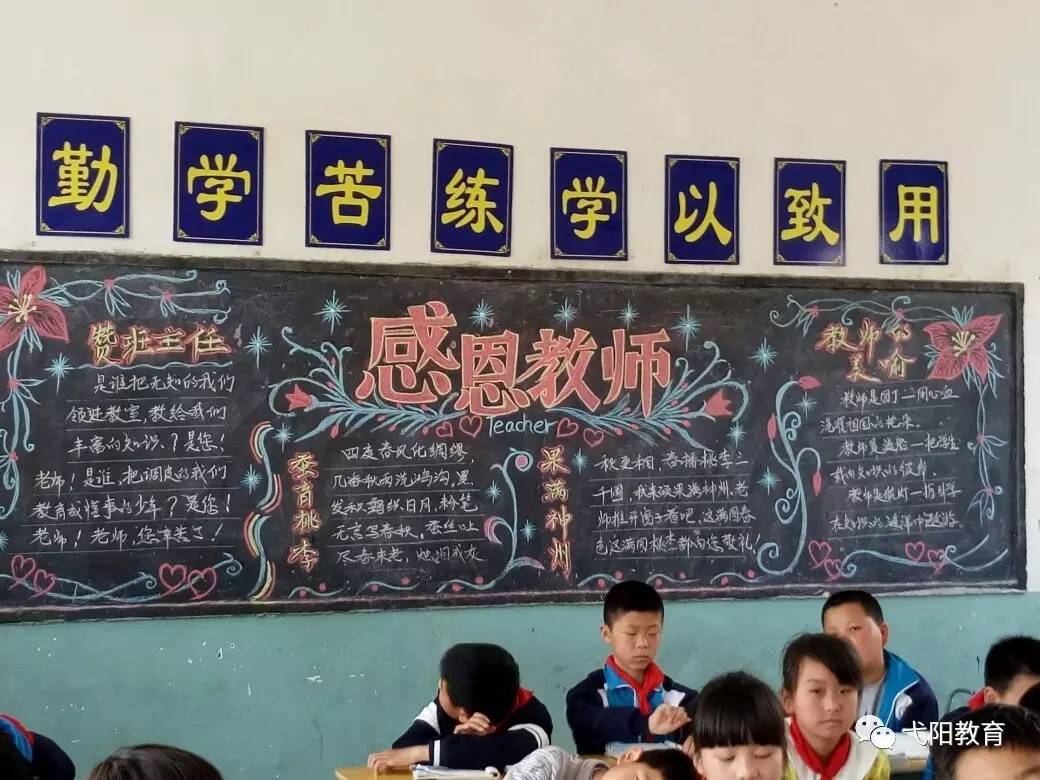 勤学苦练学以致用
赞班主任
是谁把无知的我们
领进教室,教给我们
丰富的知识.?是您!
老师!是谁,把调皮的我们
教育成懂事的少年?是您!
老师!老师,您辛苦了!
感恩教师
Teacher
蚕育桃李
四度春风化绸缪,
几番秋雨洗鸿沟,黑
发积霜织日月,粉笔
无言写春秋,蚕丝吐
尽春未老,烛泪成灰
果满神州
秋更相,春播桃李三
千圃,秋来硕果满神州,老
师推开窗子看吧,这满园春
色这满园桃李都向您敬礼!
教师的
美喻
教师是园丁一用心血
浇灌祖国的花朵.
教师是
教师是
弋阳教育